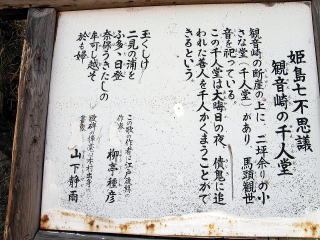 姫島七不思議
観音崎の千人堂
観音崎の断崖の上に、二坪余りの小
さな堂（千人堂）があり、馬頭観世
音を祀っている。
この千人堂は大晦日の夜、債鬼に追
われた善人を千人かくまうことがで
きるという。
玉くしげ
二見の浦を
ふ多、日登
奈保うきたしの
牟可し越そ
於も婦
この歌の作者は江戸後期の
作家
柳亭種彦
山下静雨